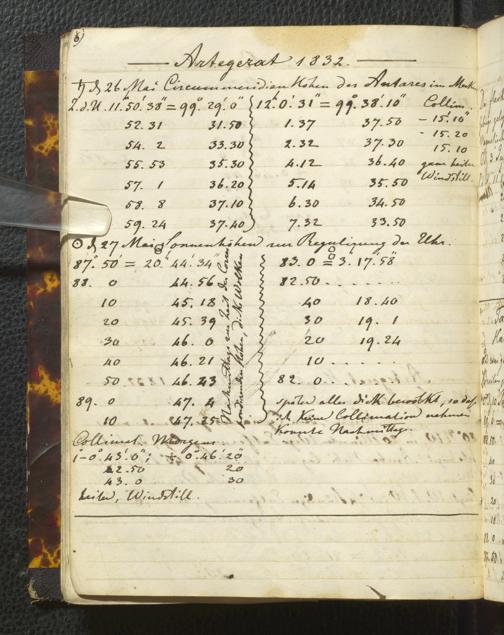 6)
Artegerat 1832.
♄ d 26 Mai Circummeridienhöhen des Antares im Merid
Z. d. U. 11.50'.38" = 99°. 29'.0" 12°.0'.31" = 99°.38'.10" Collim.
52.31 31.50 1.37 37.50 - 15'.10"
54. 2 33.30 2.32 37.30 - 15.20
55.53 35.30 4.12 36.40 15.10
57. 1 36.20 5.14 35.50 ganz heiter
58. 8 37.10 6.30 34.50 Windstill.
59.24 37.40 7.32 33.50
☉ d 27 Mai Sonnenhöhen zur Regulirung der Uhr.
87°.50' = 20°.44'.34" 83.0 = 3.17.58"
88. 0 44.56 82.50 . . . . .
10 45.18 40 18.40
20 45.39 30 19. 1
30 46. 0 20 19.24
40 46.21 10 . . . . .
50 46.43 82. 0 . . . . .
89. 0 47. 4 später alles dick bewölkt, so daß
10 47.25 ich keine Collimation nehmen
konnte Nachmittags.
Nachmittags zur Zeit der
Höhen, dicke Wolken
Collimat. Morgens
- 0°.43'.0"; + 0°.46'.20
42.50 20
43.0 30
heiter, Windstill.